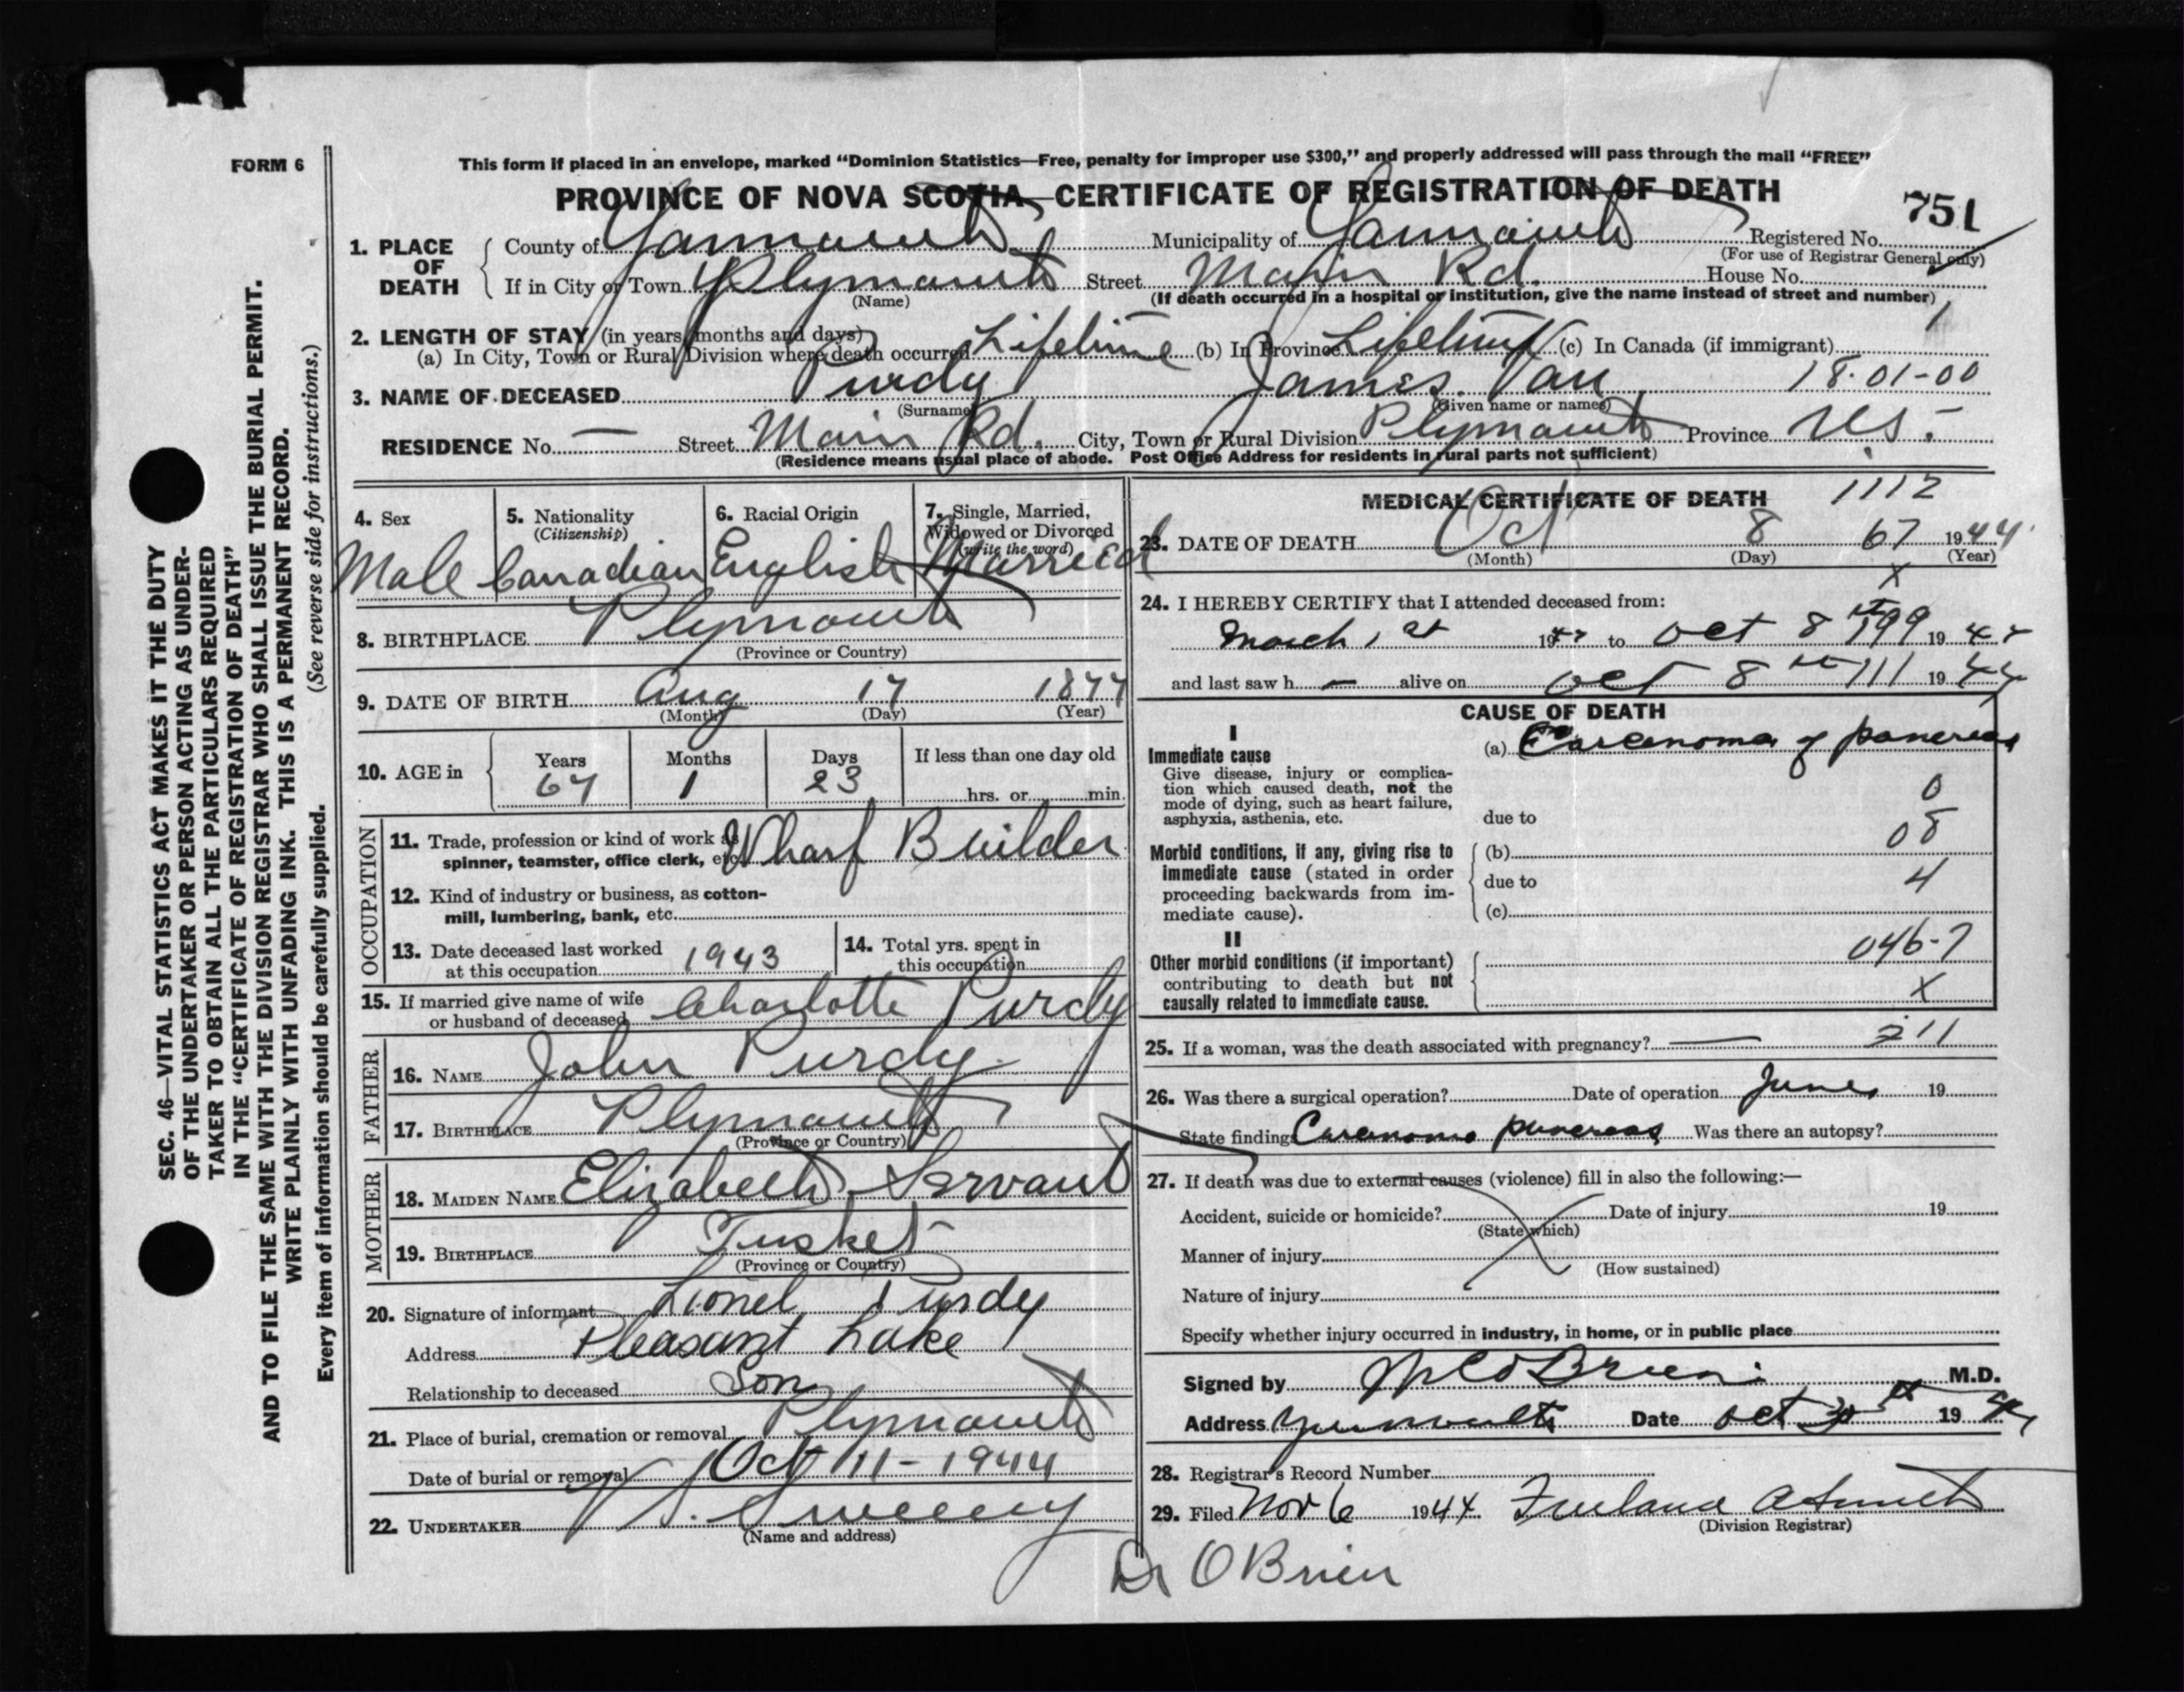 FORM 6
This form if placed in an envelope, marked “Dominion Statistics—Free, penalty for improper use $300,” and properly addressed will pass through the mail “FREE”
PROVINCE OF NOVA SCOTIA—CERTIFICATE OF REGISTRATION OF DEATH
751
1. PLACE OF DEATH County of Yarmouth Municipality of Yarmouth Registered No.
(For use of Registrar General only)
If in City or Town Plymouth Street Main Rd. House No.
(Name) (If death occurred in a hospital or institution, give the name instead of street and number)
2. LENGTH OF STAY (in years, months and days)
(a) In City, Town or Rural Division where death occurred Lifetime (b) In Province Lifetime (c) In Canada (if immigrant)
3. NAME OF DECEASED Purdy James Van 18-01-00
(Surname) (Given name or names)
RESIDENCE No. — Street Main Rd. City, Town or Rural Division Plymouth Province N.S.
(Residence means usual place of abode. Post Office Address for residents in rural parts not sufficient)
SEC. 46—VITAL STATISTICS ACT MAKES IT THE DUTY
OF THE UNDERTAKER OR PERSON ACTING AS UNDER-
TAKER TO OBTAIN ALL THE PARTICULARS REQUIRED
IN THE “CERTIFICATE OF REGISTRATION OF DEATH”
AND TO FILE THE SAME WITH THE DIVISION REGISTRAR WHO SHALL ISSUE THE BURIAL PERMIT.
WRITE PLAINLY WITH UNFADING INK. THIS IS A PERMANENT RECORD.
Every item of information should be carefully supplied. (See reverse side for instructions.)
4. Sex
Male
5. Nationality
(Citizenship)
Canadian
6. Racial Origin
English
7. Single, Married,
Widowed or Divorced
(write the word)
Married
8. BIRTHPLACE Plymouth
(Province or Country)
9. DATE OF BIRTH Aug 17 1877
(Month) (Day) (Year)
10. AGE in Years Months Days If less than one day old
67 1 23 hrs. or min.
OCCUPATION
11. Trade, profession or kind of work as
spinner, teamster, office clerk, etc. Wharf Builder
12. Kind of industry or business, as cotton-
mill, lumbering, bank, etc.
13. Date deceased last worked
at this occupation 1943
14. Total yrs. spent in
this occupation
15. If married give name of wife
or husband of deceased Charlotte Purdy
FATHER
16. NAME John Purdy
17. BIRTHPLACE Plymouth
(Province or Country)
MOTHER
18. MAIDEN NAME Elizabeth Servant
19. BIRTHPLACE Tusket
(Province or Country)
20. Signature of informant Lionel Purdy
Address Pleasant Lake
Relationship to deceased Son
21. Place of burial, cremation or removal Plymouth
Date of burial or removal Oct 11-1944
22. UNDERTAKER V. S. Sweeny
(Name and address)
MEDICAL CERTIFICATE OF DEATH 1112
23. DATE OF DEATH Oct 8 67 1944
(Month) (Day) (Year)
x
24. I HEREBY CERTIFY that I attended deceased from:
March 1st 19 to Oct 8th 199 1944
and last saw h — alive on Oct 8th 111 1944
CAUSE OF DEATH
I
Immediate cause
Give disease, injury or complica-
tion which caused death, not the
mode of dying, such as heart failure,
asphyxia, asthenia, etc.
(a) Carcenoma of pancreas
0
due to
08
Morbid conditions, if any, giving rise to
immediate cause (stated in order
proceeding backwards from im-
mediate cause).
(b)
due to
4
(c)
II
Other morbid conditions (if important)
contributing to death but not
causally related to immediate cause.
046-7
x
25. If a woman, was the death associated with pregnancy? — 211
26. Was there a surgical operation? Date of operation June 19
State findings Carcenoma pancreas Was there an autopsy?
27. If death was due to external causes (violence) fill in also the following:—
Accident, suicide or homicide? Date of injury 19
(State which)
Manner of injury
(How sustained)
Nature of injury
Specify whether injury occurred in industry, in home, or in public place
Signed by M C O'Brien M.D.
Address Yarmouth Date Oct 30th 1944
28. Registrar's Record Number
29. Filed Nov 6 1944
(Division Registrar)
Dr O'Brien